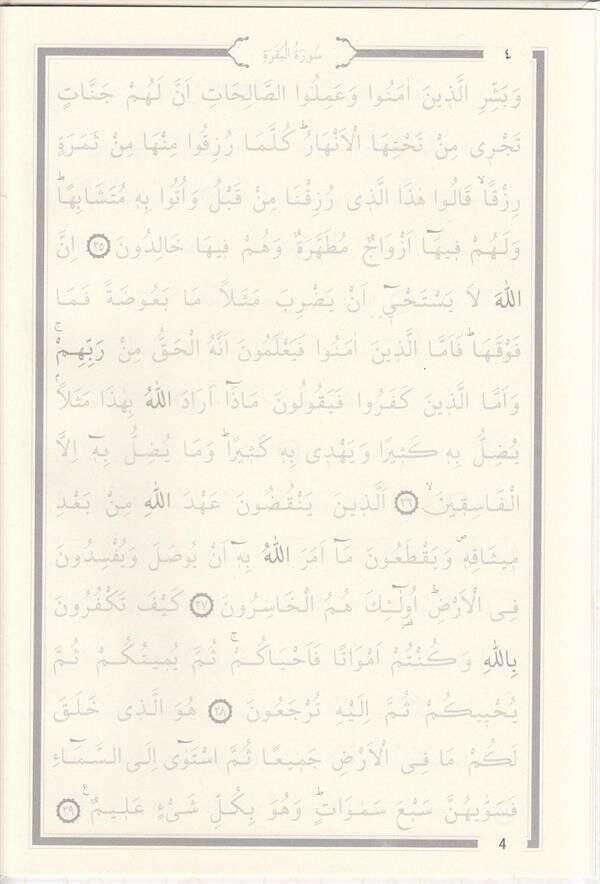 ٤
سُورَةُ الْبَقَرَةِ
وَبَشِّرِ الَّذ۪ينَ اٰمَنُوا وَعَمِلُوا الصَّالِحَاتِ اَنَّ لَهُمْ جَنَّاتٍ
تَجْر۪ي مِنْ تَحْتِهَا الْاَنْهَارُۜ كُلَّمَا رُزِقُوا مِنْهَا مِنْ ثَمَرَةٍ
رِزْقاًۙ قَالُوا هٰذَا الَّذ۪ي رُزِقْنَا مِنْ قَبْلُ وَاُتُوا بِه۪ مُتَشَابِهاًۜ
وَلَهُمْ ف۪يهَٓا اَزْوَاجٌ مُطَهَّرَةٌ وَهُمْ ف۪يهَا خَالِدُونَ ﴿٢٥﴾ اِنَّ
اللّٰهَ لَا يَسْتَحْي۪ٓ اَنْ يَضْرِبَ مَثَلاً مَا بَعُوضَةً فَمَا
فَوْقَهَاۜ فَاَمَّا الَّذ۪ينَ اٰمَنُوا فَيَعْلَمُونَ اَنَّهُ الْحَقُّ مِنْ رَبِّهِمْۚ
وَاَمَّا الَّذ۪ينَ كَفَرُوا فَيَقُولُونَ مَاذَٓا اَرَادَ اللّٰهُ بِهٰذَا مَثَلاًۢ
يُضِلُّ بِه۪ كَث۪يراً وَيَهْد۪ي بِه۪ كَث۪يراًۜ وَمَا يُضِلُّ بِه۪ٓ اِلَّا
الْفَاسِق۪ينَۙ ﴿٢٦﴾ اَلَّذ۪ينَ يَنْقُضُونَ عَهْدَ اللّٰهِ مِنْ بَعْدِ
م۪يثَاقِه۪ۖ وَيَقْطَعُونَ مَٓا اَمَرَ اللّٰهُ بِه۪ٓ اَنْ يُوصَلَ وَيُفْسِدُونَ
فِي الْاَرْضِۜ اُو۬لٰٓئِكَ هُمُ الْخَاسِرُونَ ﴿٢٧﴾ كَيْفَ تَكْفُرُونَ
بِاللّٰهِ وَكُنْتُمْ اَمْوَاتاً فَاَحْيَاكُمْۚ ثُمَّ يُم۪يتُكُمْ ثُمَّ
يُحْي۪يكُمْ ثُمَّ اِلَيْهِ تُرْجَعُونَ ﴿٢٨﴾ هُوَ الَّذ۪ي خَلَقَ
لَكُمْ مَا فِي الْاَرْضِ جَم۪يعاً ثُمَّ اسْتَوٰٓى اِلَى السَّمَٓاءِ
فَسَوّٰيهُنَّ سَبْعَ سَمٰوَاتٍۜ وَهُوَ بِكُلِّ شَيْءٍ عَل۪يمٌ۟ ﴿٢٩﴾
4